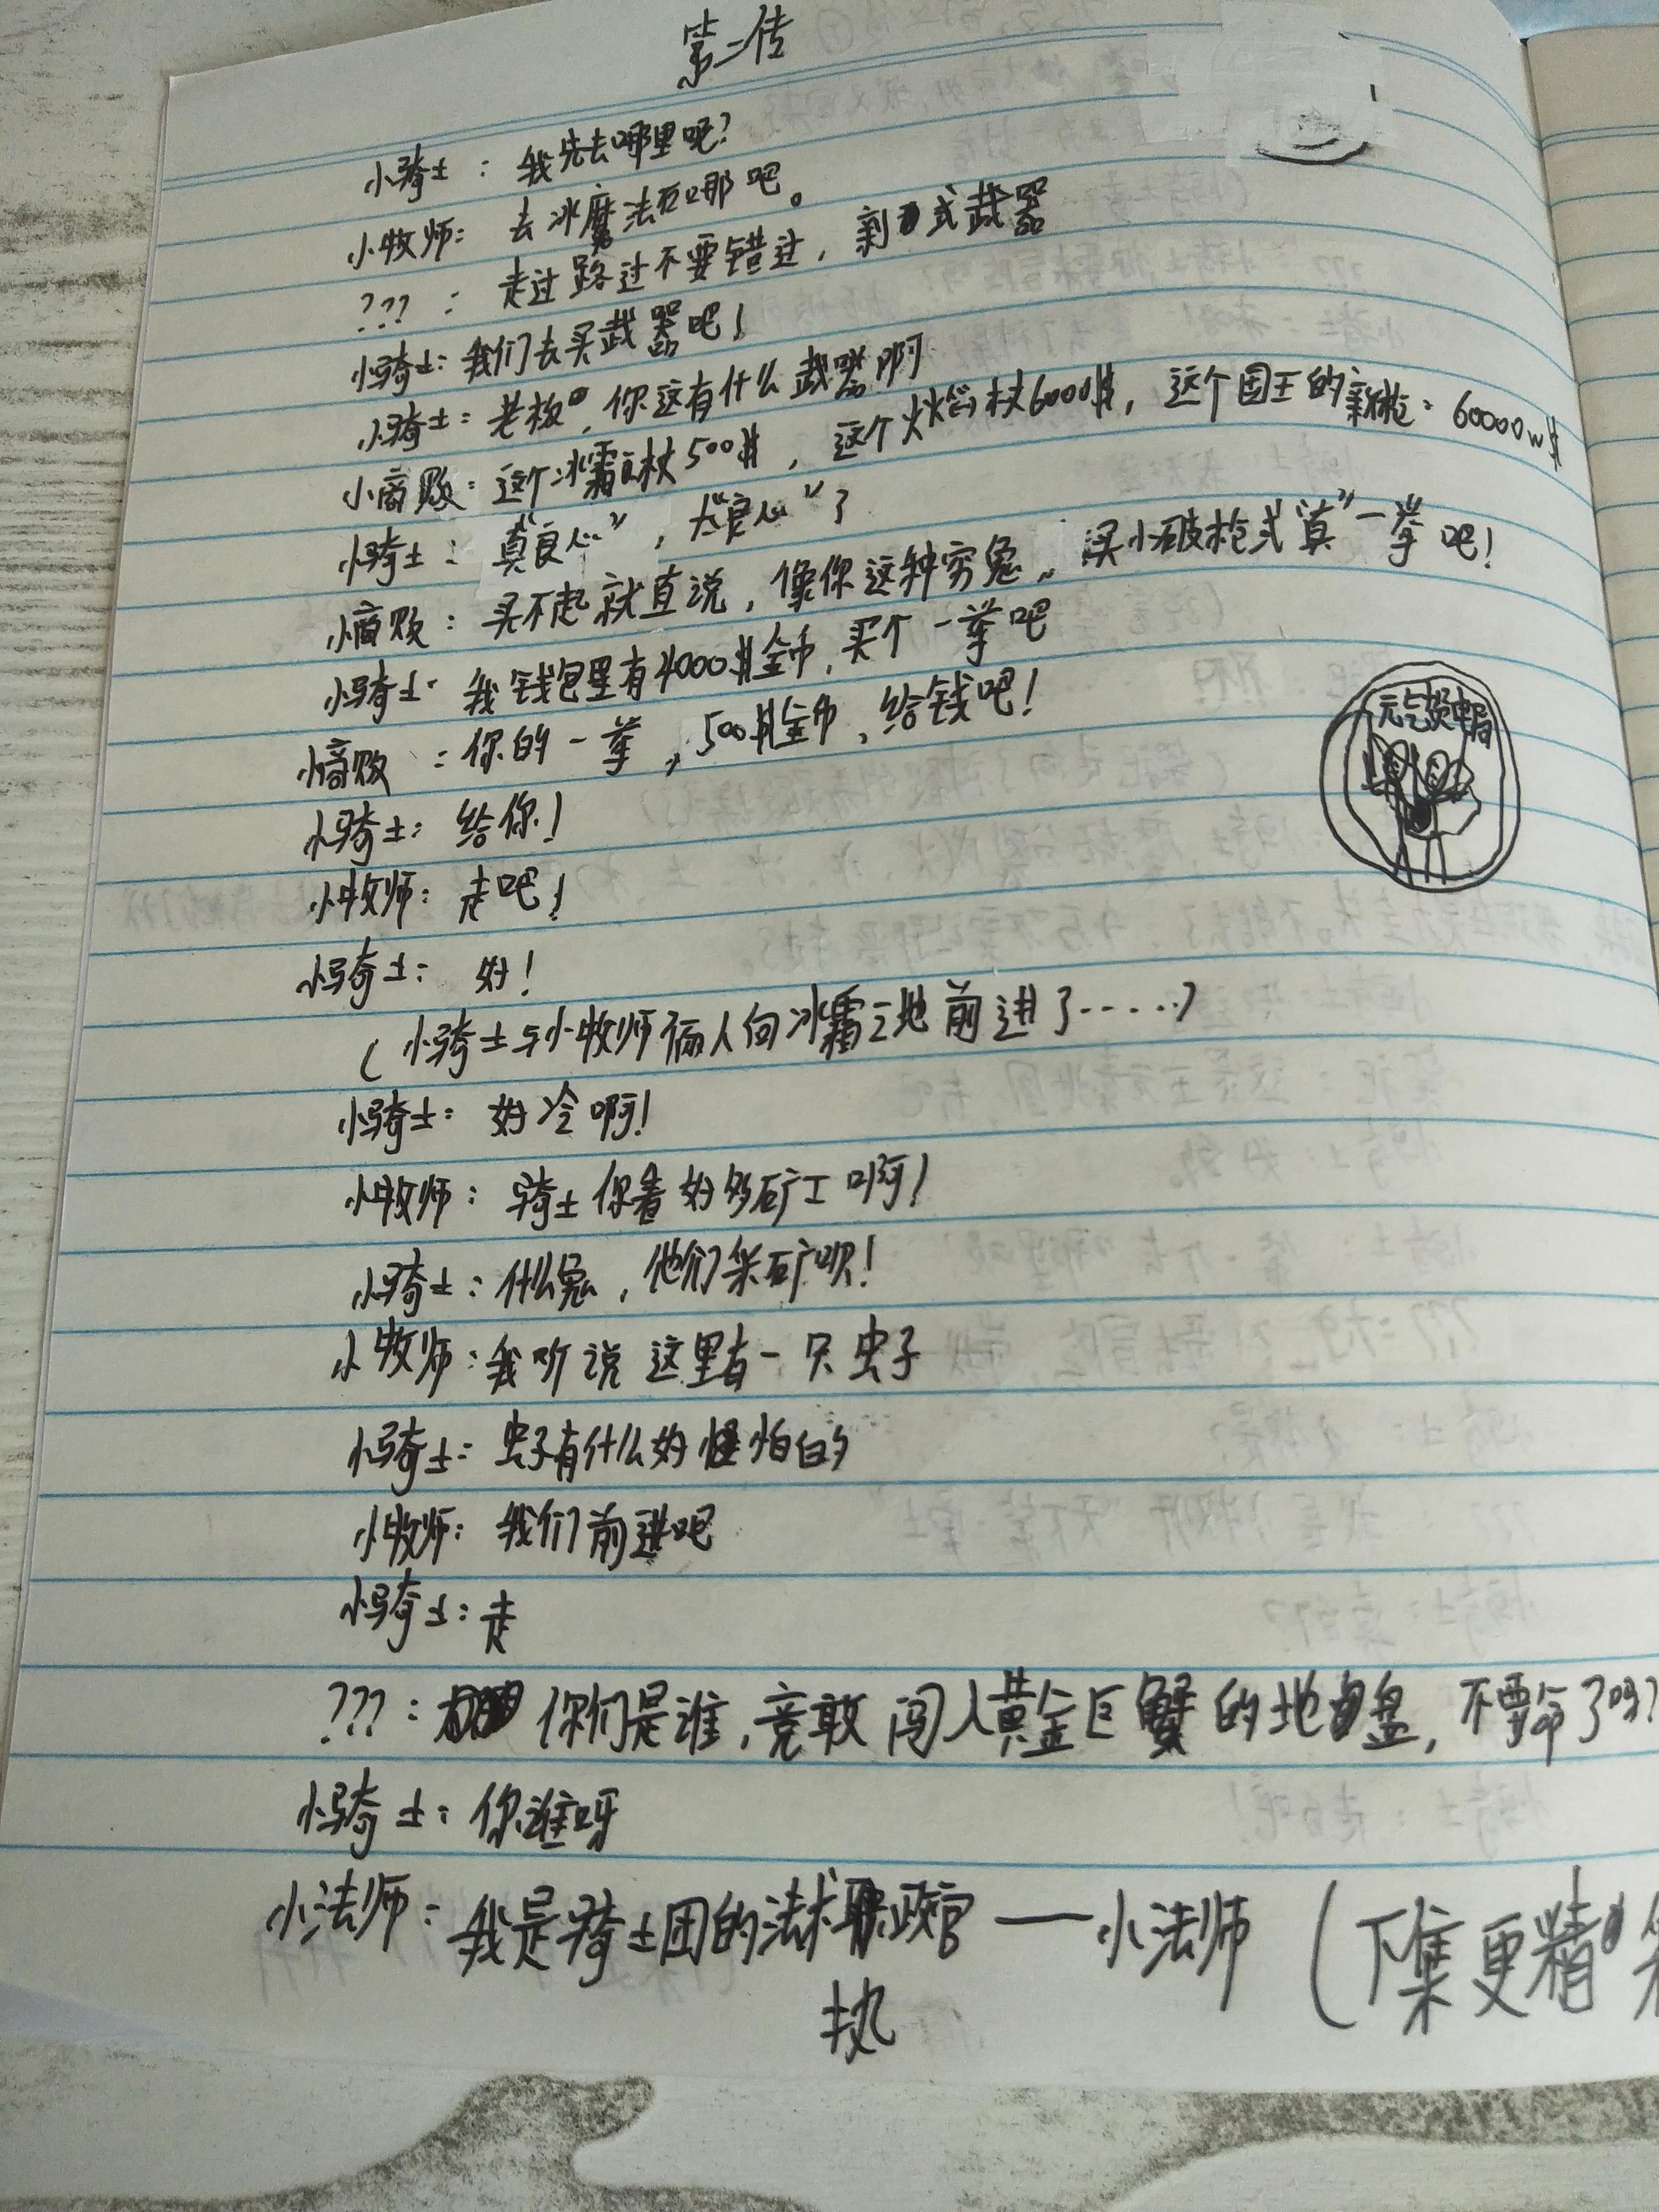 第二传
小骑士：我先去哪里呢？
小牧师：去冰魔法石哪吧。
？？？：走过路过不要错过，新式武器
小骑士：我们去买武器吧！
小骑士：老板，你这有什么武器啊
小商贩：这个冰霜之杖500$，这个火焰杖6000$，这个国王的新枪：60000w$
小骑士：真“良心”，太“良心”了
小商贩：买不起就直说，像你这种穷鬼，买小破枪式“真”一拳吧！
小骑士：我钱包里有4000$金币，买个一拳吧
小商贩：你的一拳，500$金币，给钱吧！
小骑士：给你！
小牧师：走吧！
小骑士：好！
（小骑士与小牧师俩人向冰霜之地前进了……）
小骑士：好冷啊！
小牧师：骑士你看好多矿工啊！
小骑士：什么鬼，他们采矿呗！
小牧师：我听说这里有一只虫子
小骑士：虫子有什么好怕的
小牧师：我们前进吧
小骑士：走
？？？：你们是谁，竞敢闯入黄金巨蟹的地盘，不要命了吗？
小骑士：你谁呀
小法师：我是骑士团的法术执政官——小法师（下集更精
元气骑士